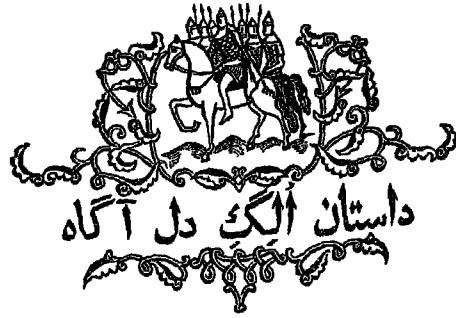 داستان اُلِگِ دل آگاه